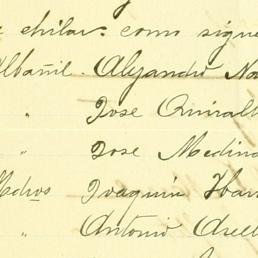 chilar: como sigue
Albañil. Alejandro No
" Jose
" Jose Medina
Joaquin Ibar
" Antonio Arell